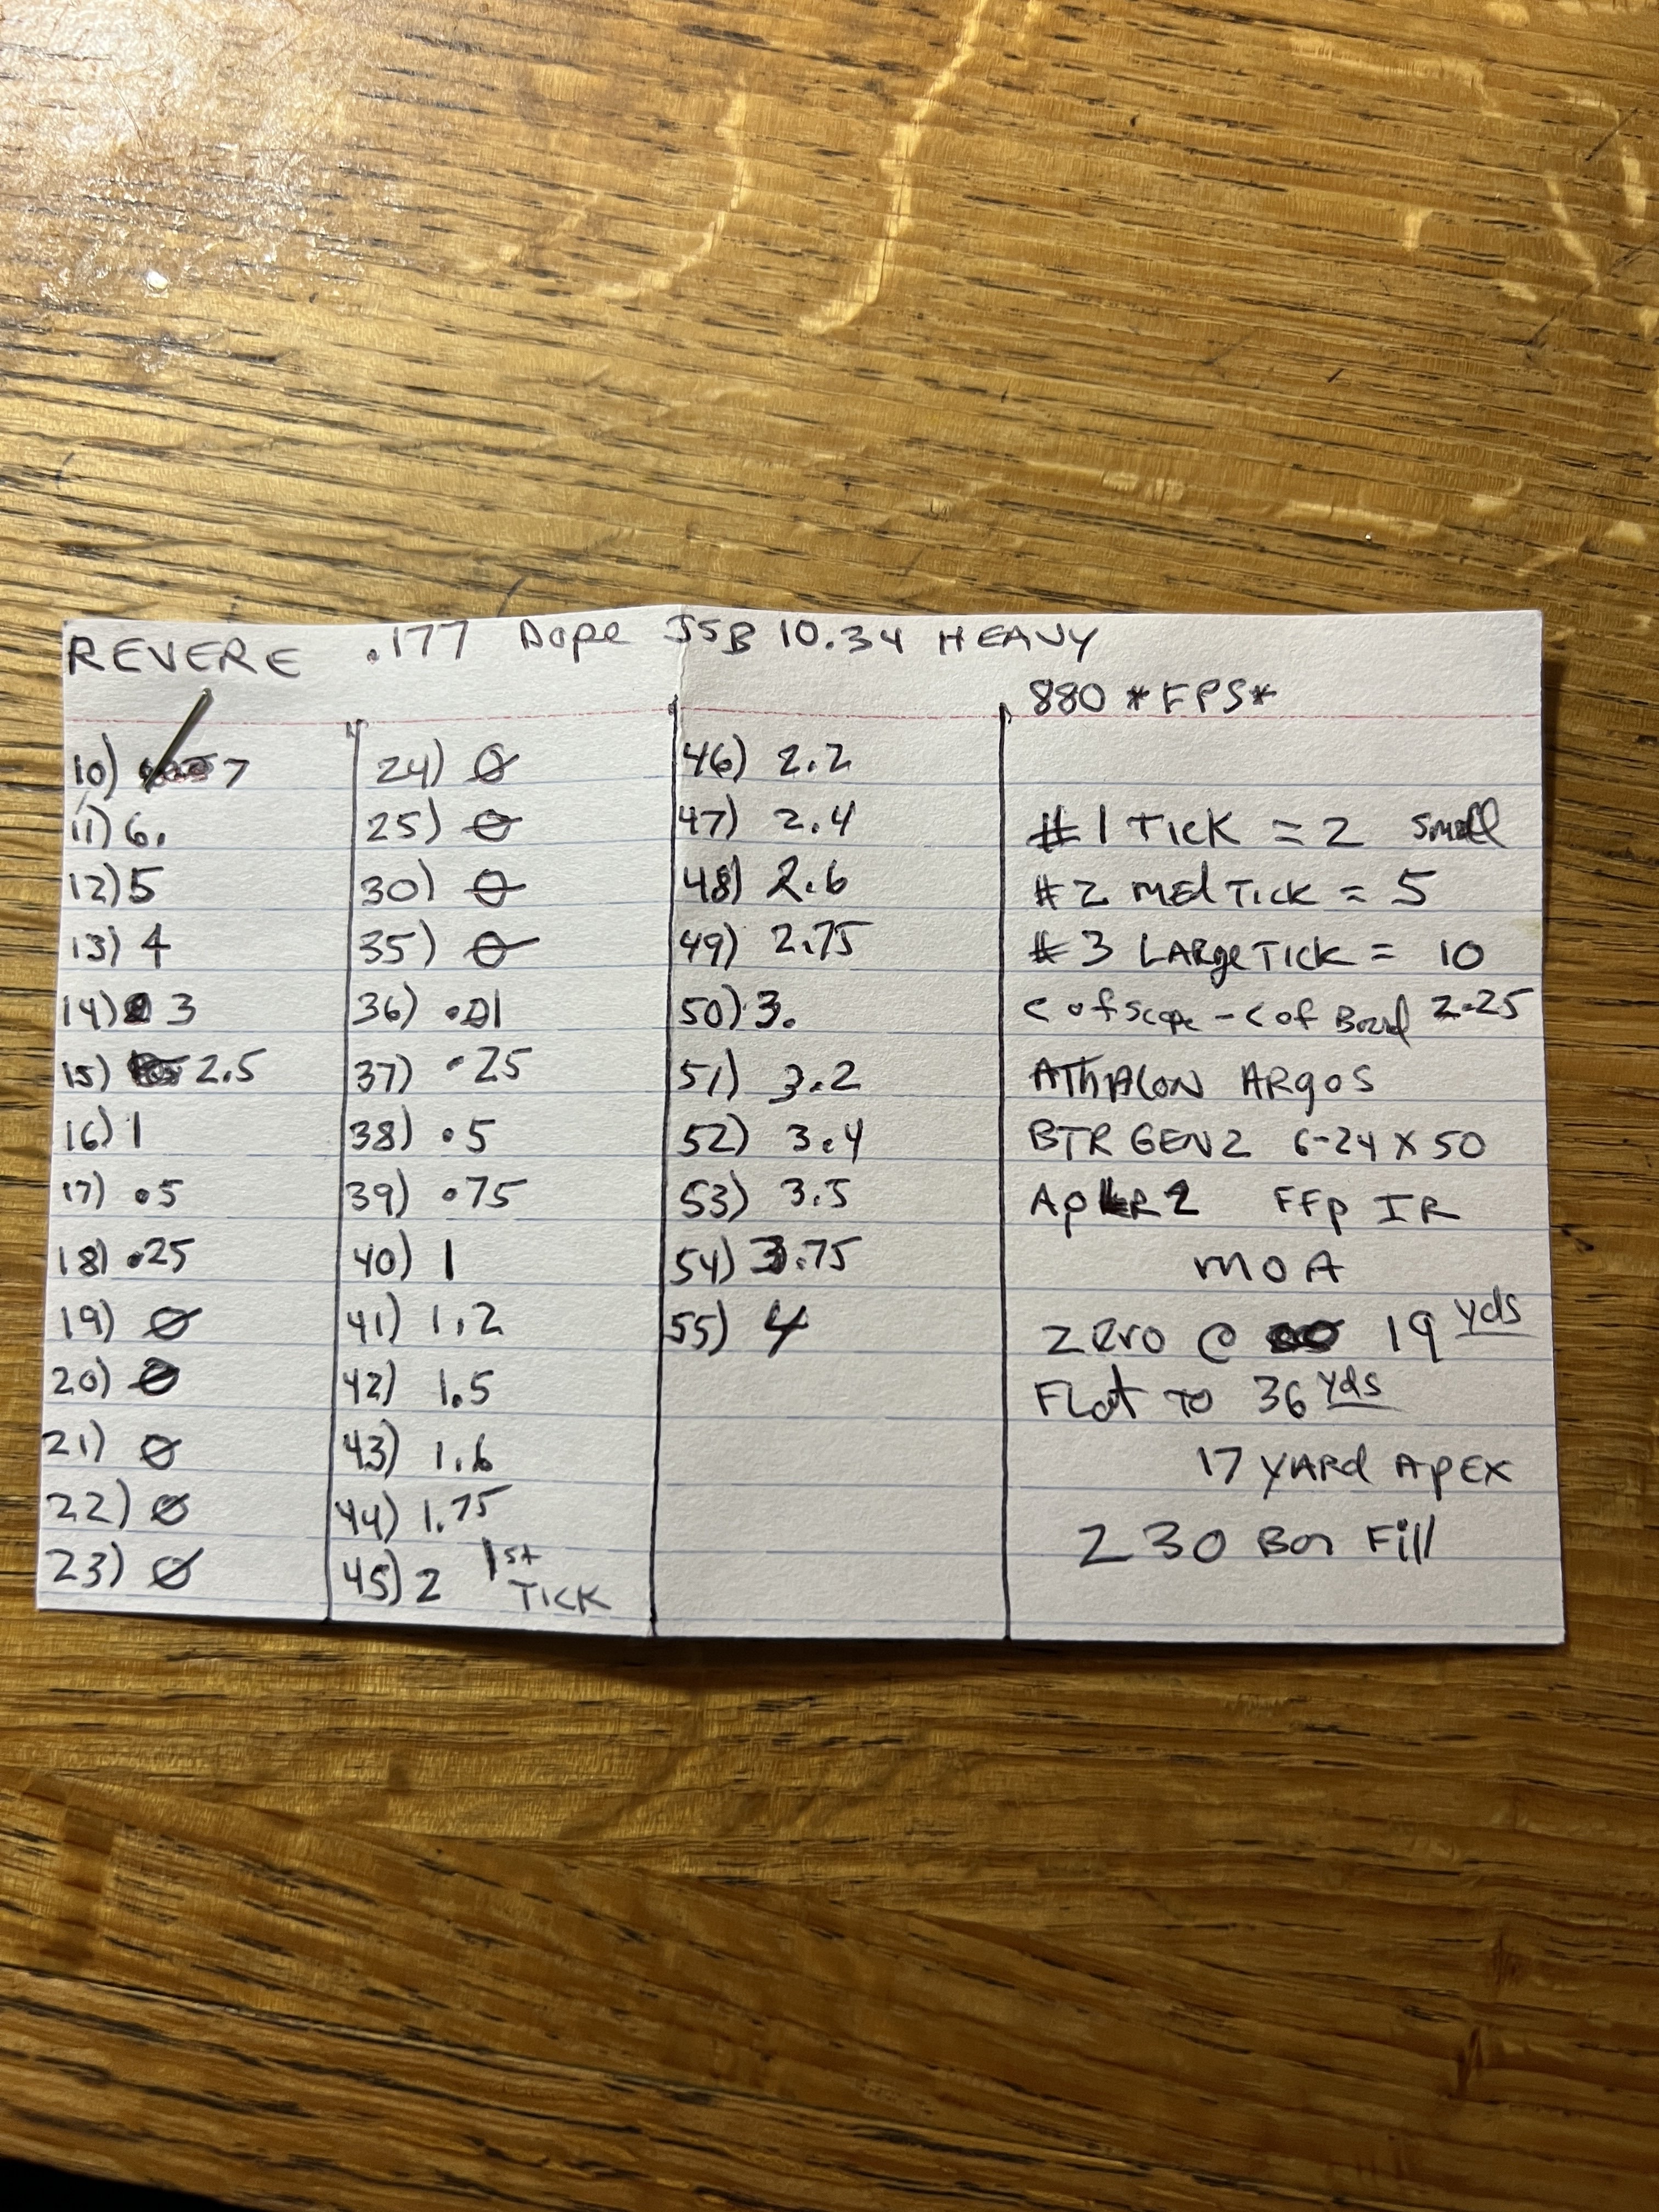 REVERE .177 Dope JSB 10.34 HEAVY
880 *FPS*
10) 7
11) 6.
12) 5
13) 4
14) 3
15) 2.5
16) 1
17) .5
18) .25
19) Ø
20) Ø
21) Ø
22) Ø
23) Ø
24) Ø
25) Ø
30) Ø
35) Ø
36) .01
37) .25
38) .5
39) .75
40) 1
41) 1.2
42) 1.5
43) 1.6
44) 1.75
45) 2 1st TICK
46) 2.2
47) 2.4
48) 2.6
49) 2.75
50) 3.
51) 3.2
52) 3.4
53) 3.5
54) 3.75
55) 4
#1 TICK = 2 small
#2 MEd TICK = 5
#3 LARgE TICK = 10
C of Scope - C of 2.25
ATHALON ARgOS
BTR GEN2 6-24 X 50
FFP IR
MOA
Zero @ 19 yds
FLat TO 36 yds
17 YARd APEX
230 Bar Fill